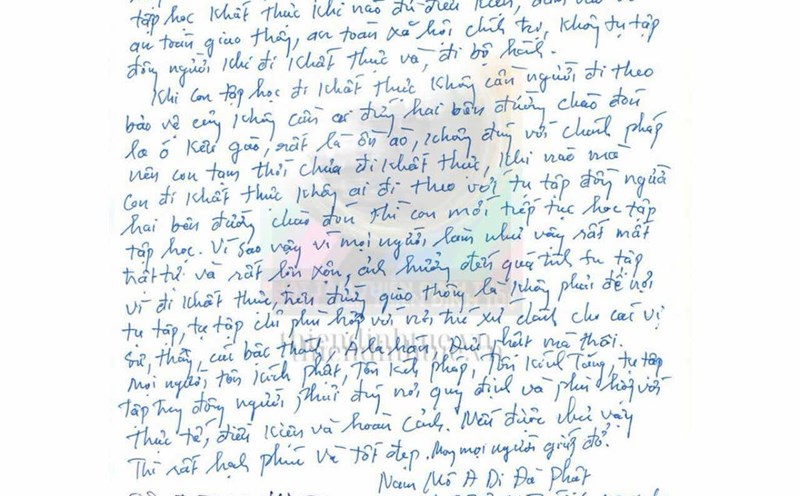 tập học khất thực khi nào đủ điều kiện, đảm bảo về
an toàn giao thông, an toàn xã hội chính trị, không tụ tập
đông người khi đi khất thực và, đi bộ hành.
Khi con tập học đi khất thực không cần người đi theo
bảo vệ cũng không cần ai đứng hai bên đường chào đón
la ó kêu gào, rất là ồn ào, không đúng với chánh pháp
nên con tạm thời chưa đi khất thực, khi nào mà
con đi khất thực không ai đi theo với tụ tập đông người
hai bên đường chào đón thì con mới tiếp tục học tập
tập học. Vì sao vậy vì mọi người làm như vậy rất mất
trật tự và rất lộn xộn, ảnh hưởng đến quá trình tu tập
vì đi khất thực, trên đường giao thông là không phải để nơi
tụ tập, tụ tập chỉ phù hợp với nơi trú xứ dành cho các vị
sư, thầy, các bậc thánh, A la hán, Đức phật mà thôi.
Mọi người tôn kính phật, tôn kính pháp, tôn kính Tăng, tụ tập
tập trung đông người, phải đúng nơi quy định và phù hợp với
thực tế, điều kiện và hoàn cảnh. Nếu được như vậy
Thì rất hạnh phúc và tốt đẹp. Mong mọi người giúp đỡ.
Nam Mô A Di Đà Phật